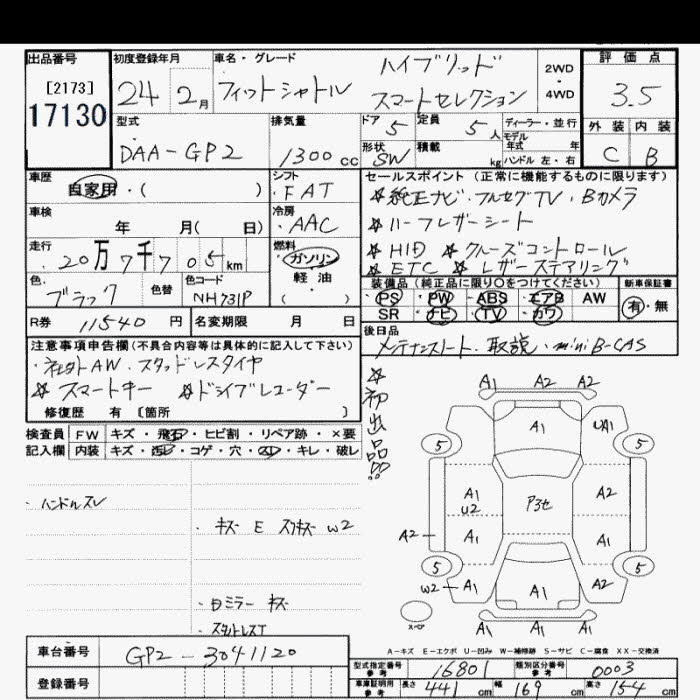 出品番号
[2173]
17130
初度登録年月
24年2月
車名・グレード
フィットシャトル ハイブリッド
スマートセレクション
2WD
4WD
評価点
3.5
外装 内装
C B
型式
DAA-GP2
排気量
1300cc
ドア 5
定員 5人
ディーラー・並行
モデル年式 年
形状 SW
積載 kg
ハンドル 左・右
車歴
自家用・( )
シフト
FAT
車検
年 月( 日)
冷房
AAC
走行
20万7千705km
燃料
ガソリン
軽油
( )
色
ブラック
色替
色コード
NH731P
R券 11540円
名変期限 月 日
セールスポイント (正常に機能するものに限ります)
☆純正ナビ・フルセグTV・Bカメラ
☆ハーフレザーシート
☆HID ☆クルーズコントロール
☆ETC ☆レザーステアリング
装備品(純正品に限り〇をつけてください)
PS PW ABS エアB AW
SR ナビ TV カワ
新車保証書
有・無
後日品
メンテナンスノート.取説.miniB-CAS
注意事項申告欄(不具合内容等は具体的に記入して下さい)
・社外AW.スタッドレスタイヤ
☆スマートキー ☆ドライブレコーダー
修復歴 有 〔箇所 〕
☆初出品!!
検査員記入欄
FW キズ・飛石・ヒビ割・リペア跡・×要
内装 キズ・汚レ・コゲ・穴・凹・キレ・破レ
・ハンドルスレ
・キズ E スリキズ W2
・日ミラー キズ
・スタットレスT
A1 A2 A2
A1 UA1
5 5
A1 U2 P3セ A2
A2 A1 A1
5 5
W2 A1 A1 A2
A1 A1 A1
スペア
A-キズ E-エクボ U-凹み W-補修跡 S-サビ C-腐食 XX-交換済
車台番号
GP2-3041120
登録番号
型式指定番号 参考 16801
類別区分番号 参考 0003
車庫証明用 参考 長さ 441cm 幅 169cm 高さ 154cm